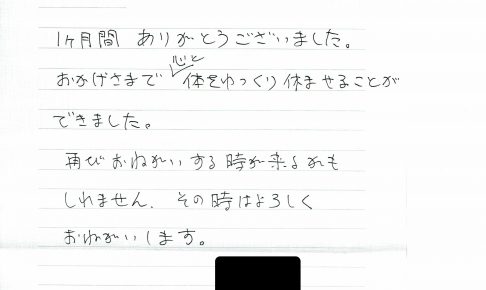 1ヶ月間 ありがとうございました。
おかげさまで心と体をゆっくり休ませることが
できました。
再びおねがいする時が来るかも
しれません. その時はよろしく
おねがいします。